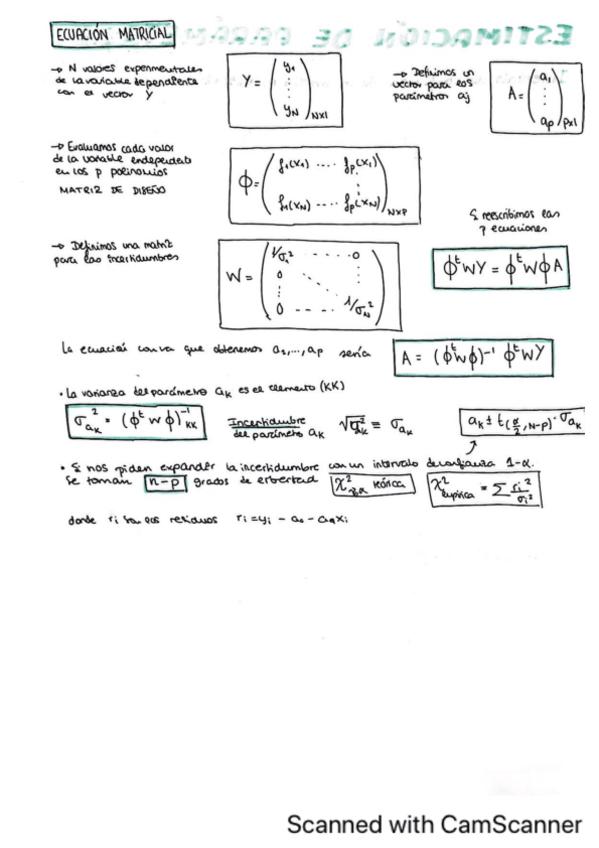 ESTIMACIÓN DE PARÁM
ECUACIÓN MATRICIAL
→ N valores experimentales
de la variable dependiente
con el vector Y
Y = (y1 ⋮ yN) Nx1
→ Definimos un
vector para los
parámetros aj
A = (a1 ⋮ ap) px1
→ Evaluamos cada valor
de la variable independiente
en los p polinomios
MATRIZ DE DISEÑO
ϕ = (f1(x1) .... fp(x1) ⋮ f1(xN) .... fp(xN)) Nxp
Si reescribimos las
p ecuaciones
→ Definimos una matriz
para las incertidumbres
W = (1/σ1² ..... 0 0 ⋮ 0 ---- 1/σN²)
ϕᵗWY = ϕᵗWϕA
La ecuación con la que obtenemos a1,...,ap sería
A = (ϕᵗWϕ)⁻¹ ϕᵗWY
• La varianza del parámetro aK es el elemento (KK)
σ²aK = (ϕᵗWϕ)⁻¹KK
Incertidumbre
del parámetro aK
√σ²aK = σaK
aK ± t(α/2, N-p) · σaK
• Si nos piden expandir la incertidumbre con un intervalo de confianza 1-α.
Se toman n-p grados de libertad
χ² teórica
χ² empírica = Σ ri²/σi²
donde ri son los residuos ri = yi - a0 - a1xi
Scanned with CamScanner